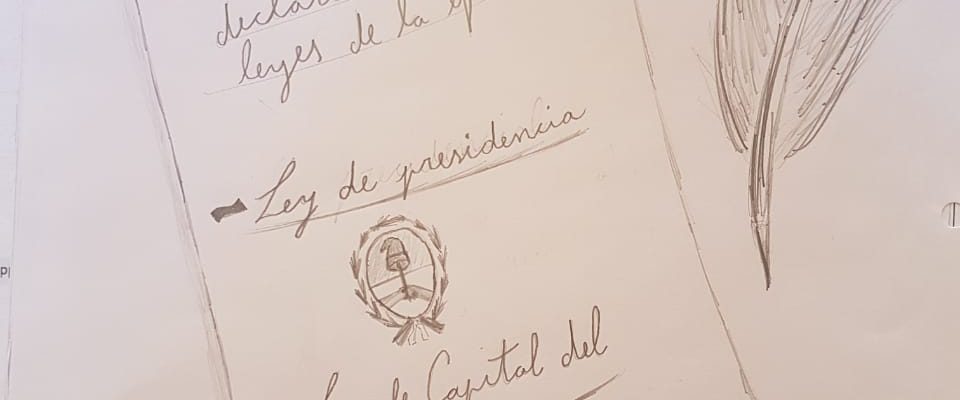 leyes de la
- Ley de presidencia
de Capital del